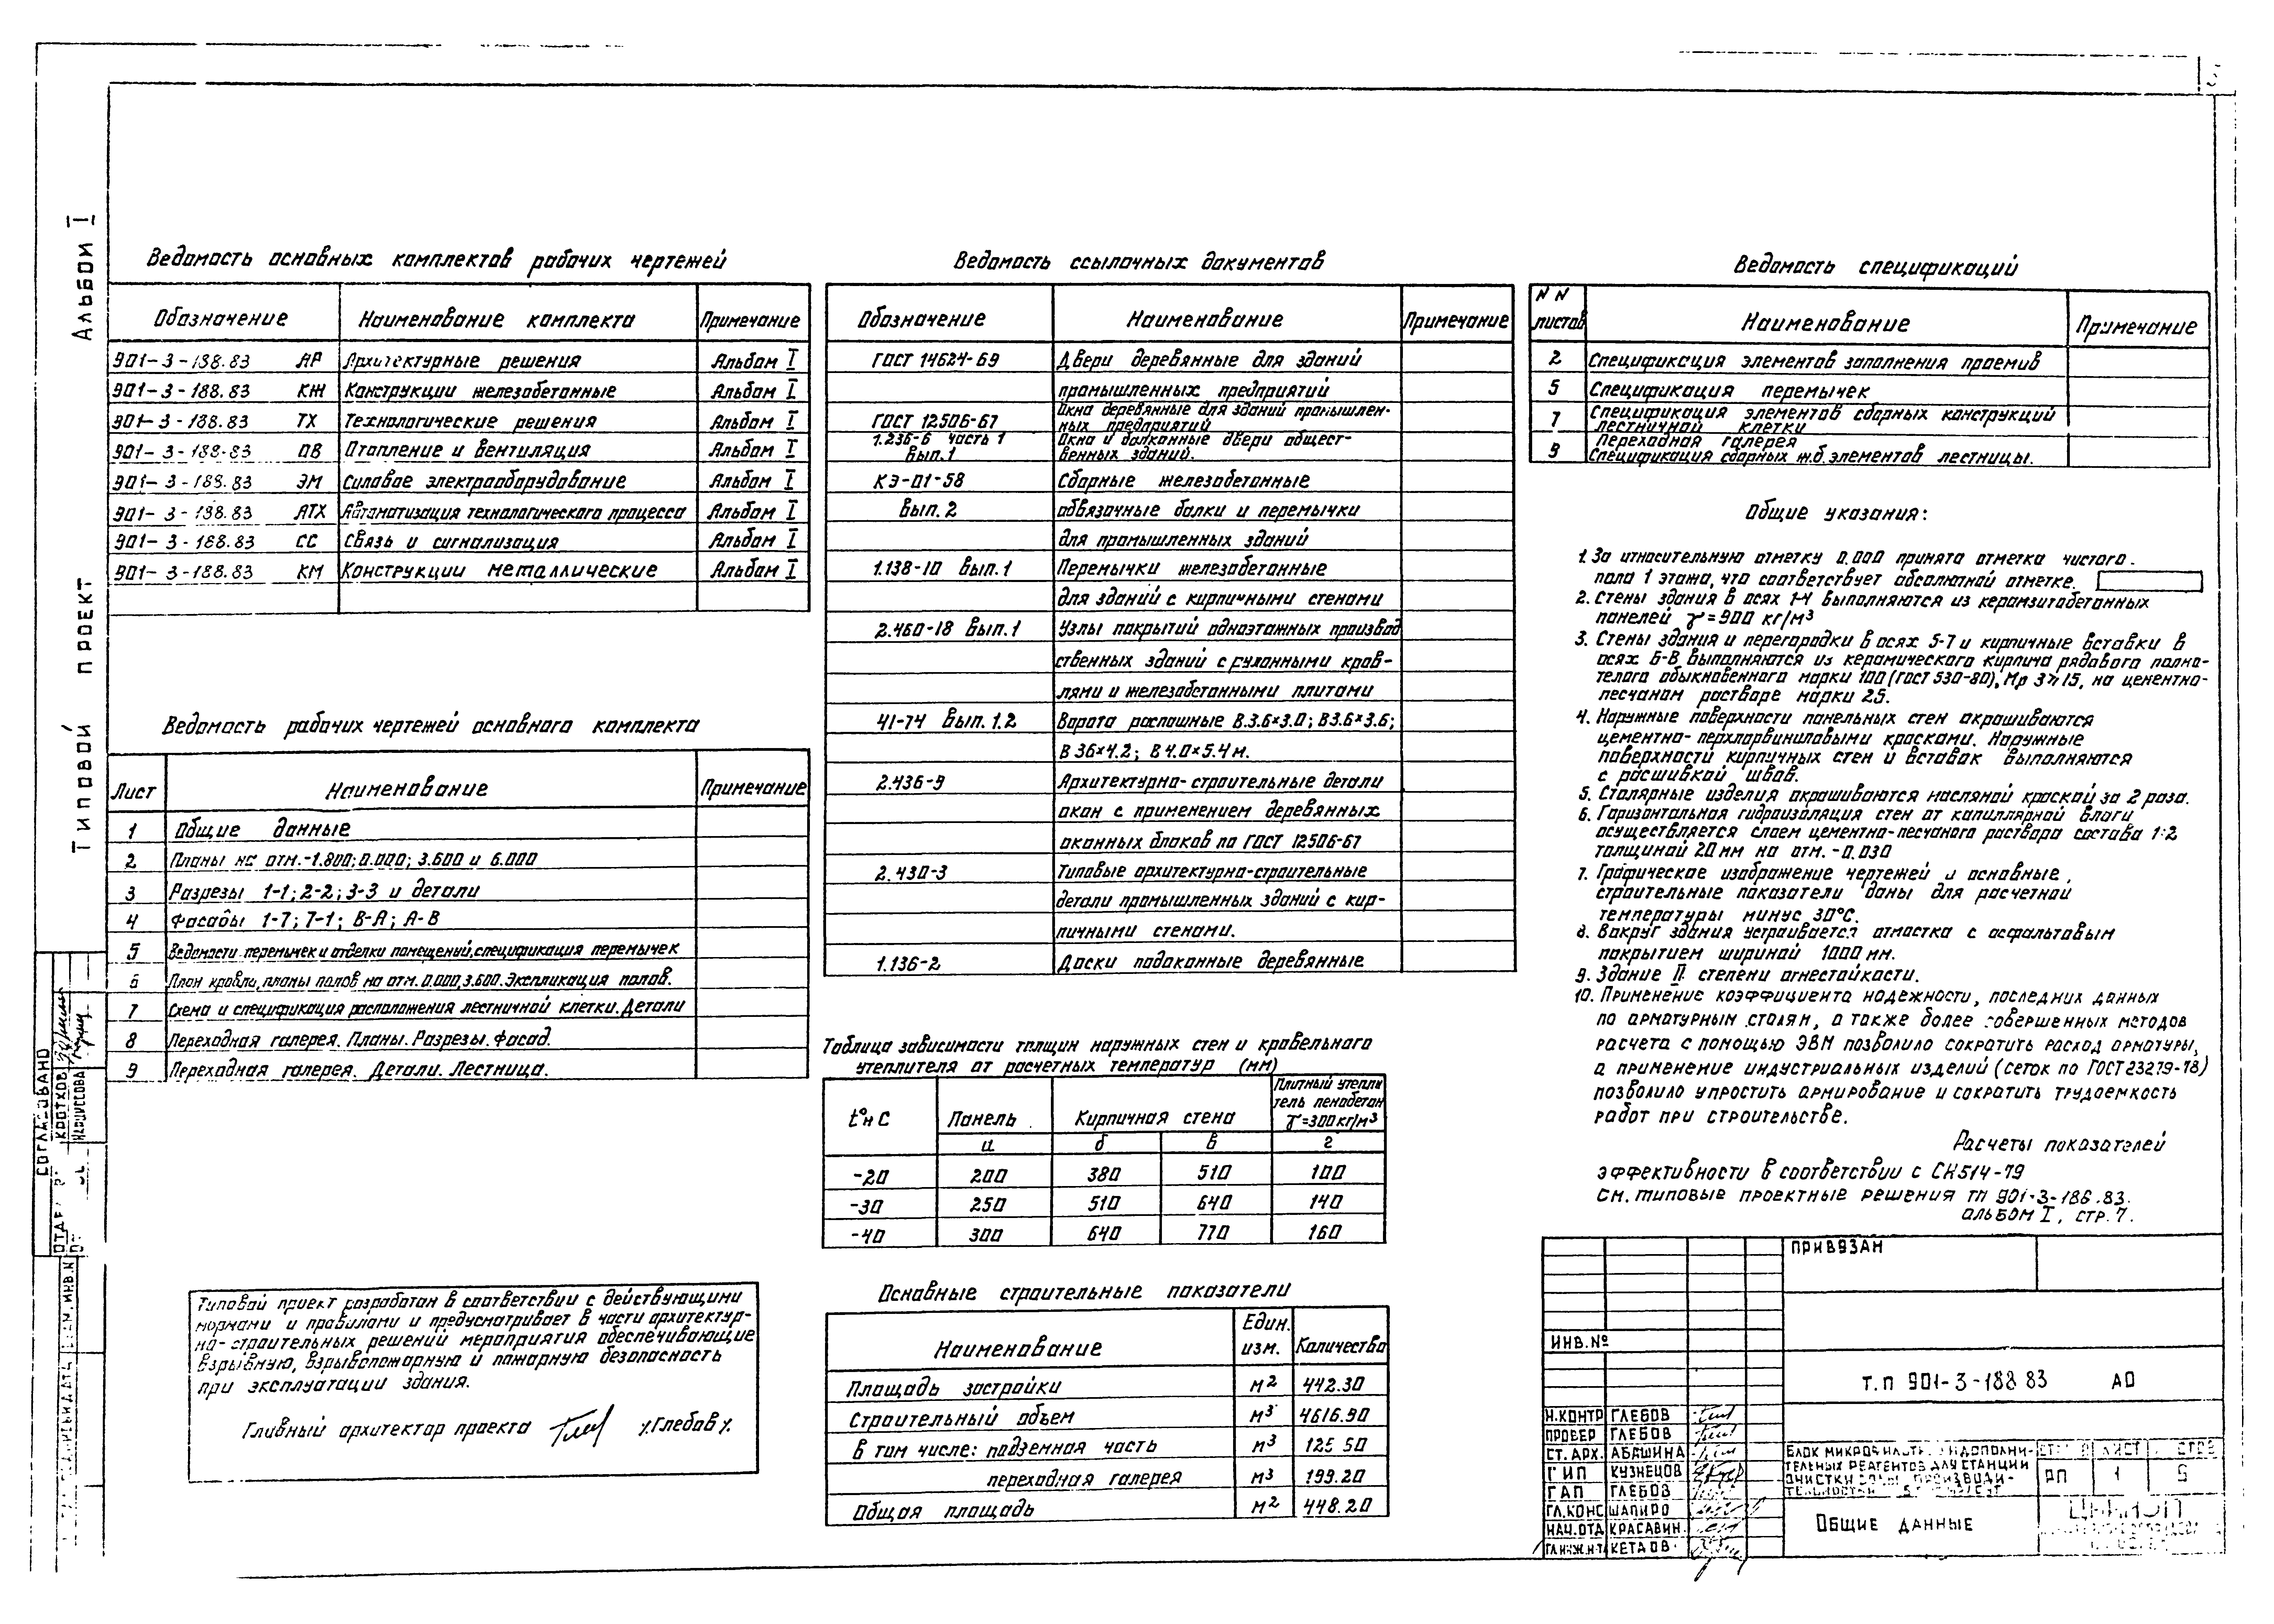 Альбом I
Типовой проект
Ведомость основных комплектов рабочих чертежей
Обозначение Наименование комплекта Примечание
901-3-188.83 АР Архитектурные решения Альбом I
901-3-188.83 КЖ Конструкции железобетонные Альбом I
901-3-188.83 ТХ Технологические решения Альбом I
901-3-188-83 ОВ Отопление и вентиляция Альбом I
901-3-188.83 ЭМ Силовое электрооборудование Альбом I
901-3-188.83 АТХ Автоматизация технологического процесса Альбом I
901-3-188.83 СС Связь и сигнализация Альбом I
901-3-188.83 КМ Конструкции металлические Альбом I
Ведомость рабочих чертежей основного комплекта
Лист Наименование Примечание
1 Общие данные
2 Планы на отм.-1.800; 0.000; 3.600 и 6.000
3 Разрезы 1-1; 2-2; 3-3 и детали
4 Фасады 1-7; 7-1; В-А; А-В
5 Ведомости перемычек и отделки помещений, спецификация перемычек
6 План кровли, планы полов на отм. 0.000, 3.600. Экспликация полов.
7 Схема и спецификация расположения лестничной клетки. Детали
8 Переходная галерея. Планы. Разрезы. Фасад.
9 Переходная галерея. Детали. Лестница.
Типовой проект разработан в соответствии с действующими
нормами и правилами и предусматривает в части архитектур-
но-строительных решений мероприятия обеспечивающие
взрывную, взрывопожарную и пожарную безопасность
при эксплуатации здания.
Главный архитектор проекта /Глебов/
Ведомость ссылочных документов
Обозначение Наименование Примечание
ГОСТ 14624-69 Двери деревянные для зданий
промышленных предприятий
ГОСТ 12506-67 Окна деревянные для зданий промышлен-
ных предприятий
1.236-6 часть 1 Окна и балконные двери общест-
Вып.1 венных зданий.
КЭ-01-58 Сборные железобетонные
Вып.2 обвязочные балки и перемычки
для промышленных зданий
1.138-10 Вып.1 Перемычки железобетонные
для зданий с кирпичными стенами
2.460-18 Вып.1 Узлы покрытий одноэтажных производ
ственных зданий с рулонными кров-
лями и железобетонными плитами
41-74 Вып. 1.2 Ворота распашные В.3.6×3.0; В3.6×3.6;
В 3.6×4.2; В 4.0×5.4 м.
2.436-9 Архитектурно-строительные детали
окон с применением деревянных
оконных блоков по ГОСТ 12506-67
2.430-3 Типовые архитектурно-строительные
детали промышленных зданий с кир-
пичными стенами.
1.136-2 Доски подоконные деревянные
Таблица зависимости толщин наружных стен и кровельного
утеплителя от расчетных температур (мм)
t°н С Панель Кирпичная стена Плитный утепли
тель пенобетон
γ=300кг/м³
а б в г
-20 200 380 510 100
-30 250 510 640 140
-40 300 640 770 160
Основные строительные показатели
Наименование Един. изм. Количество
Площадь застройки м² 442.30
Строительный объем м³ 4616.90
в том числе: подземная часть м³ 125.50
переходная галерея м³ 199.20
Общая площадь м² 448.20
Ведомость спецификаций
N N листов Наименование Примечание
2 Спецификация элементов заполнения проемов
5 Спецификация перемычек
7 Спецификация элементов сборных конструкций
лестничной клетки
9 Переходная галерея
Спецификация сборных ж.б. элементов лестницы.
Общие указания:
1. За относительную отметку 0.000 принята отметка чистого
пола 1 этажа, что соответствует абсолютной отметке.
2. Стены здания в осях 1-4 выполняются из керамзитобетонных
панелей γ=900 кг/м³
3. Стены здания и перегородки в осях 5-7 и кирпичные вставки в
осях Б-В выполняются из керамического кирпича рядового полно-
телого обыкновенного марки 100 (ГОСТ 530-80), Мр З ≥ 15, на цементно-
песчаном растворе марки 25.
4. Наружные поверхности панельных стен окрашиваются
цементно-перхлорвиниловыми красками. Наружные
поверхности кирпичных стен и вставок выполняются
с расшивкой швов.
5. Столярные изделия окрашиваются масляной краской за 2 раза.
6. Горизонтальная гидроизоляция стен от капиллярной влаги
осуществляется слоем цементно-песчаного раствора состава 1:2
толщиной 20 мм на отм. -0.030
7. Графическое изображение чертежей и основные
строительные показатели даны для расчетной
температуры минус 30°С.
8. Вокруг здания устраивается отмостка с асфальтовым
покрытием шириной 1000 мм.
9. Здание II степени огнестойкости.
10. Применение коэффициента надежности, последних данных
по арматурным сталям, а также более совершенных методов
расчета с помощью ЭВМ позволило сократить расход арматуры,
а применение индустриальных изделий (сеток по ГОСТ 23279-78)
позволило упростить армирование и сократить трудоемкость
работ при строительстве.
Расчеты показателей
эффективности в соответствии с СН514-79
см. типовые проектные решения ТП 901-3-186.83.
альбом I, стр. 7.
Привязан
Инв.№
Т.П 901-3-188 83 АО
Н.контр Глебов
Провер Глебов
Ст.арх. Абашина
ГИП Кузнецов
ГАП Глебов
Гл.конс Шапиро
Нач.отд Красавин
Гл.инж.н-т Кетаов
тельных реагентов для станции
лист
РП 1
Общие данные
ЦНИИЭП
Согласовано